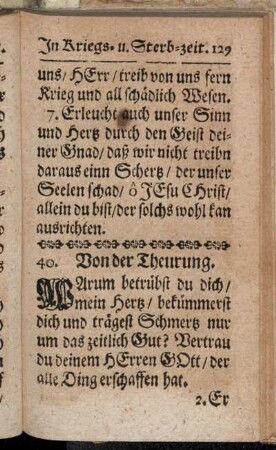 In Kriegs- u. Sterb-zeit. 129
uns/ HErr/ treib von uns fern
Krieg und all schädlich Wesen.
7. Erleucht auch unser Sinn
und Hertz durch den Geist dei-
ner Gnad/ daß wir nicht treibn
daraus einn Schertz/ der unser
Seelen schad/ ô JEsu CHrist/
allein du bist/ der solchs wohl kan
ausrichten.
40. Von der Theurung.
WArum betrübst du dich/
mein Hertz/ bekümmerst
dich und trägest Schmertz nur
um das zeitlich Gut? Vertrau
du deinem HErren GOtt/ der
alle Ding erschaffen hat.
2. Er